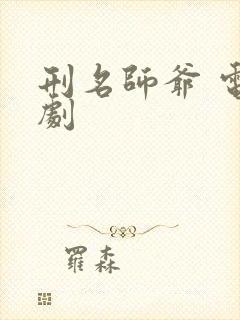 刑名師爺 電
劇
羅森